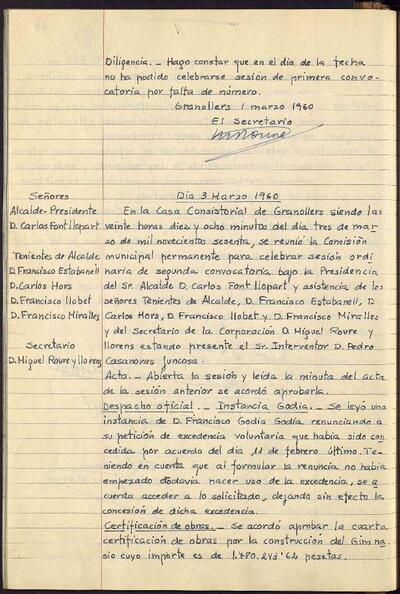 Diligencia. - Hago constar que en el dia de la fecha
no ha podido celebrarse sesión de primera convo-
catoria por falta de número.
Granollers 1 marzo 1960
El Secretario
Señores
Alcalde-Presidente
D. Carlos Font llopart
Tenientes de Alcalde
D. Francisco Estabanell
D. Carlos Hors
D. Francisco llobet
D. Francisco Miralles
Secretario
D. Miguel Roure y llorens
Dia 3 Marzo 1960
En la Casa Consistorial de Granollers siendo las
veinte horas diez y ocho minutos del dia tres de mar
zo de mil novecientos sesenta, se reunió la Comisión
municipal permanente para celebrar sesión ordi
naria de segunda convocatoria bajo la Presidencia
del Sr. Alcalde D. Carlos Font llopart y asistencia de los
señores Tenientes de Alcalde, D. Francisco Estabanell, D.
Carlos Hors, D. Francisco llobet y D. Francisco Miralles
y del Secretario de la Corporación D. Miguel Roure y
llorens estando presente el Sr. Interventor D. Pedro
Casanovas Juncosa.
Acta. - Abierta la sesión y leida la minuta del acta
de la sesión anterior se acordó aprobarla.
Despacho oficial. - Instancia Godia. - Se leyó una
instancia de D. Francisco Godia Godia renunciando a
su petición de excedencia voluntaria que habia sido con
cedida por acuerdo del dia 11 de febrero último. Te-
niendo en cuenta que al formular la renuncia no habia
empezado todavia hacer uso de la excedencia, se a
cuerda acceder a lo solicitado, dejando sin efecto la
concesión de dicha excedencia.
Certificación de obras. - Se acordó aprobar la cuarta
certificación de obras por la construcción del Gimna
sio cuyo importe es de 1.480.243'62 pesetas.